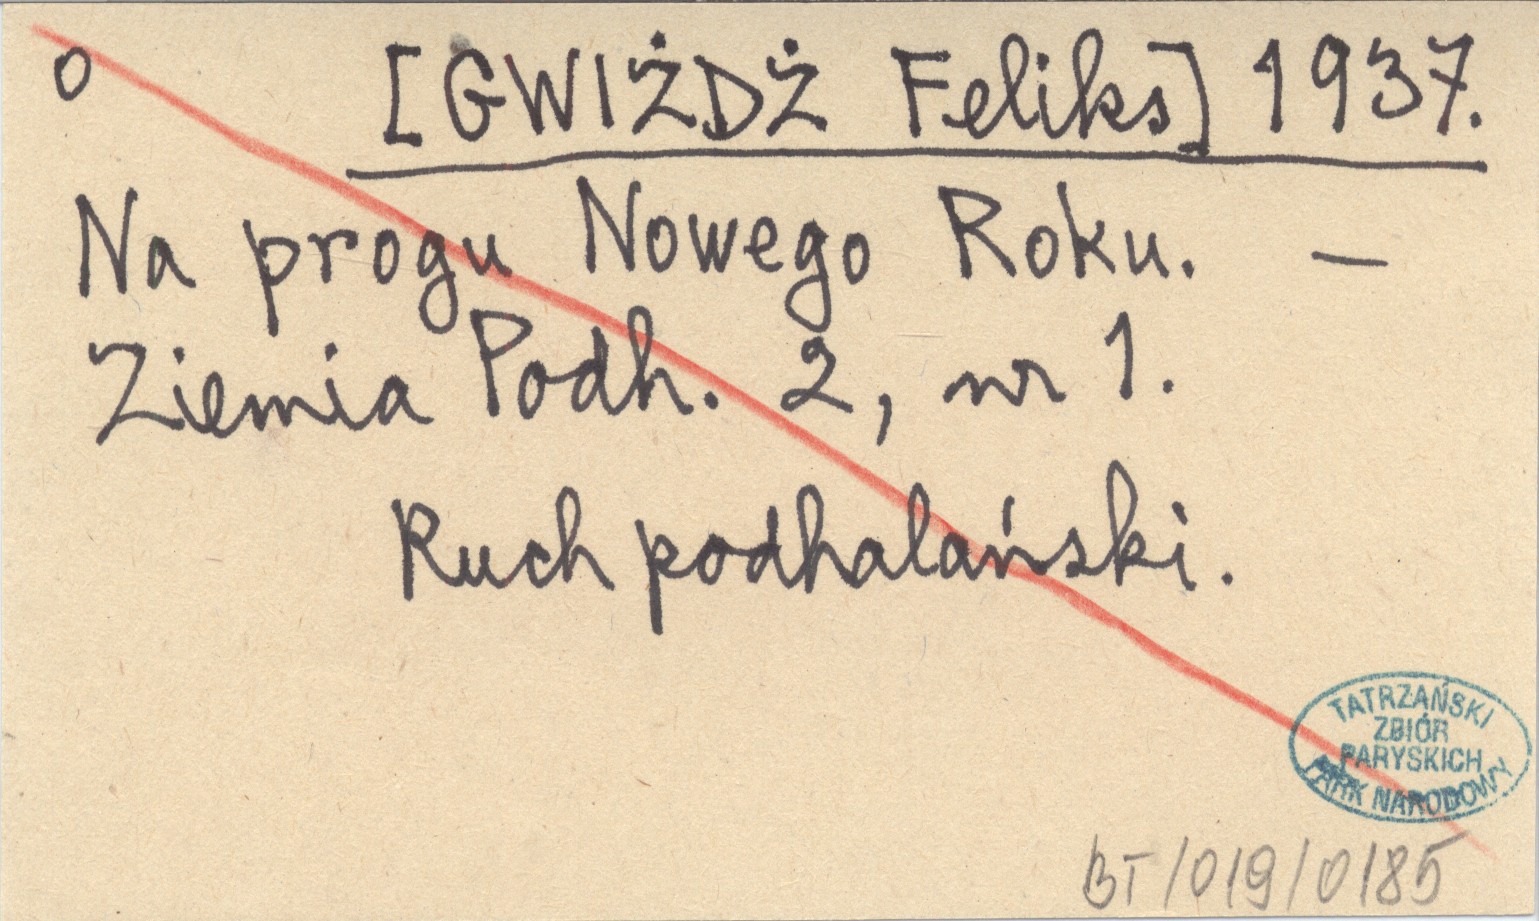 o [GWIŻDŻ Feliks] 1937.
Na progu Nowego Roku. —
Ziemia Podh. 2, nr 1.
Ruch podhalański.
TATRZAŃSKI
ZBIÓR
PARYSKICH
PARK NARODOWY
BT/019/0185